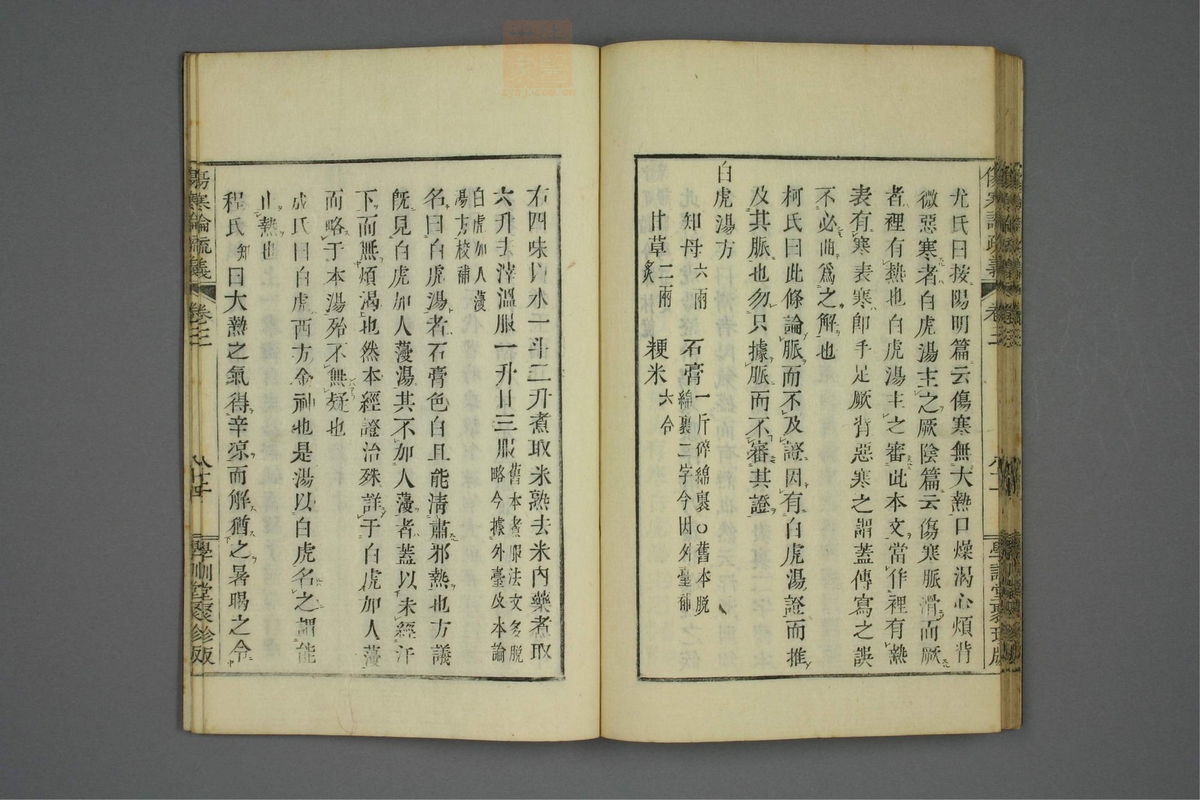 尤氏曰按陽明篇云傷寒無大熱口燥渴心煩背
微惡寒者白虎湯主之厥陰篇云傷寒脈滑而厥
者裡有熱也白虎湯主之審此本文當作裡有熱
表有寒表寒卽手足厥背惡寒之謂蓋傳寫之誤
不必曲爲之解也
柯氏曰此條論脈而不及證因有白虎湯證而推
及其脈也勿只據脈而不審其證
白虎湯方
知母六兩 石膏一斤碎綿裹○舊本脱綿裹二字今因外臺補
甘草二兩炙 粳米六合
右四味以水一斗二升煮取米熟去米內藥煮取
六升去滓溫服一升日三服舊本煮服法文多脱略今據外臺及本論
白虎加人薓湯方校補
名曰白虎湯者石膏色白且能清肅邪熱也方議
旣見白虎加人薓湯其不加人薓者蓋以未經汗
下而無煩渴也然本經證治殊詳于白虎加人薓
而略于本湯殆不無疑也
成氏曰白虎西方金神也是湯以白虎名之謂能
止熱也
程氏知曰大熱之氣得辛凉而解猶之暑暍之令
傷寒論疏義
卷三
八十四
學訓堂聚珍版